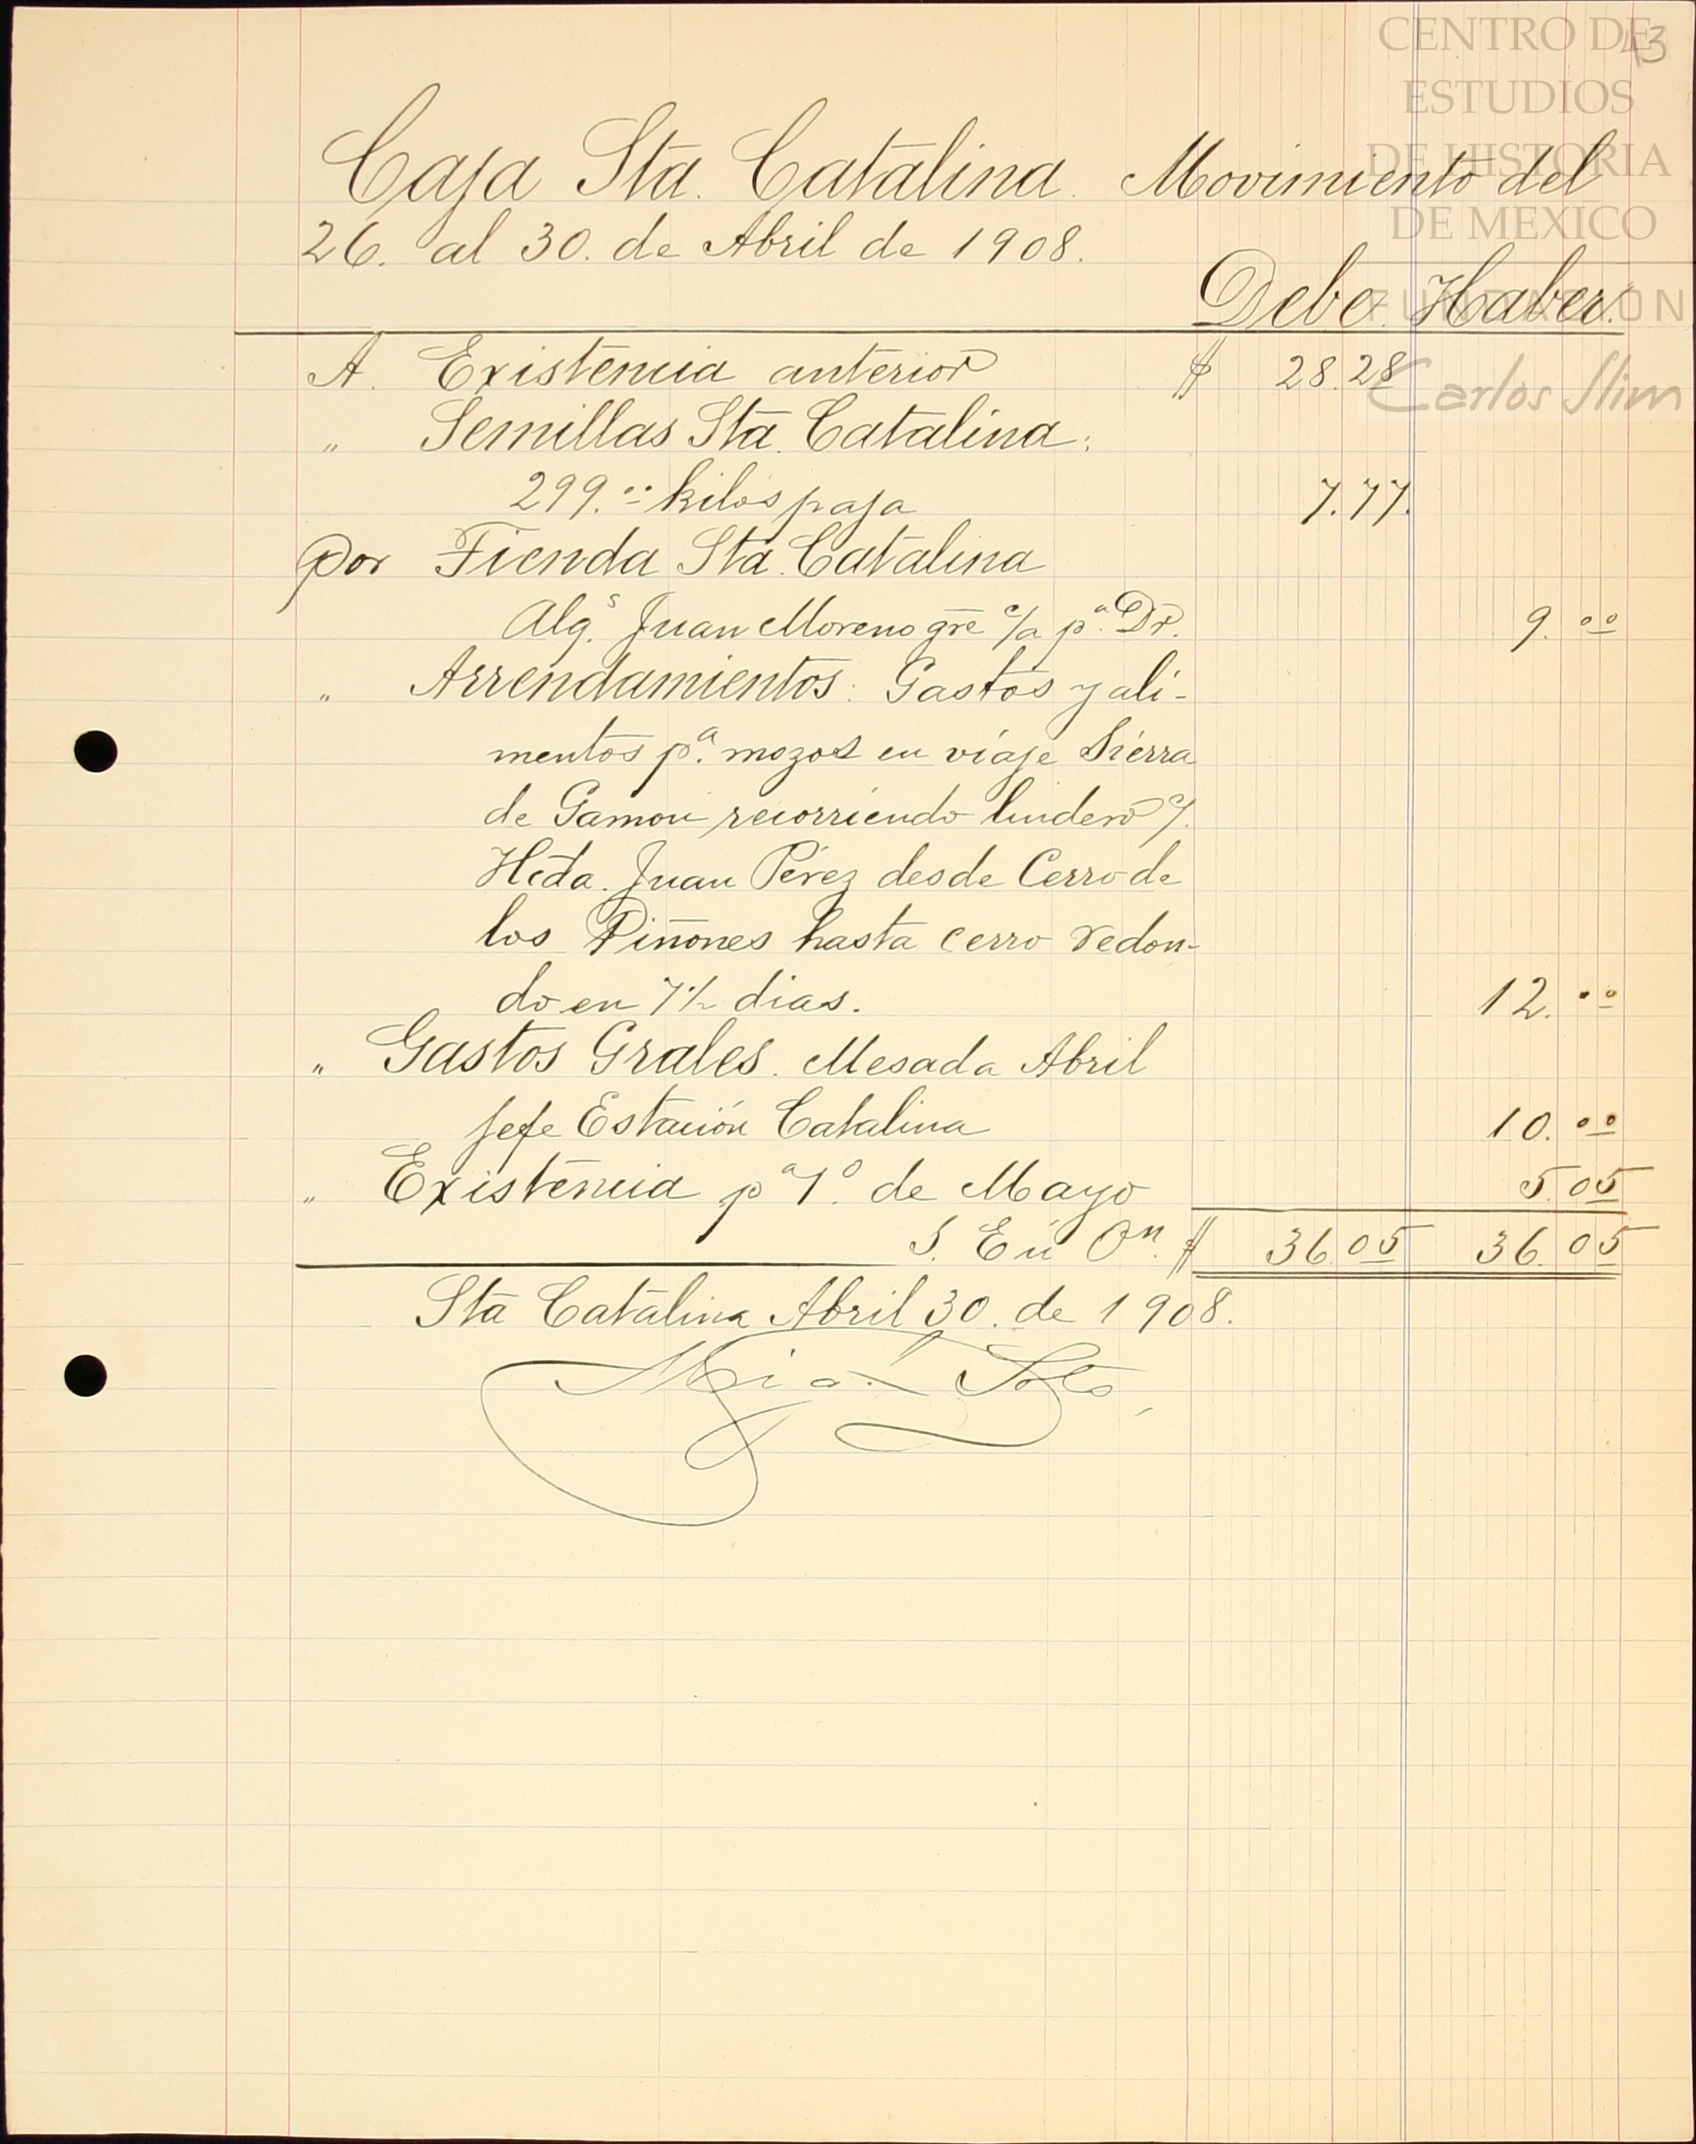 43
CENTRO DE
ESTUDIOS
DE HISTORIA
DE MEXICO
FUNDACION
Carlos Slim
Caja Sta. Catalina. Movimiento del
26. al 30. de Abril de 1908.
Debe. Haber.
A. Existencia anterior $ 28.28
„ Semillas Sta. Catalina:
299.00 kilos paja 7.77.
Por Tienda Sta. Catalina
Alg.s Juan Moreno gre c/a p.a Dr. 9.00
„ Arrendamientos: Gastos y ali-
mentos p.a mozos en viaje Sierra
de Gamon recorriendo lindero
Hcda. Juan Pérez desde Cerro de
los Piñones hasta cerro redon-
do en 7½ dias. 12.00
„ Gastos Grales. Mesada Abril
Jefe Estación Catalina 10.00
„ Existencia pa 1o. de Mayo 5.05
S. E ú On. $ 36.05 36.05
Sta Catalina Abril 30. de 1908.